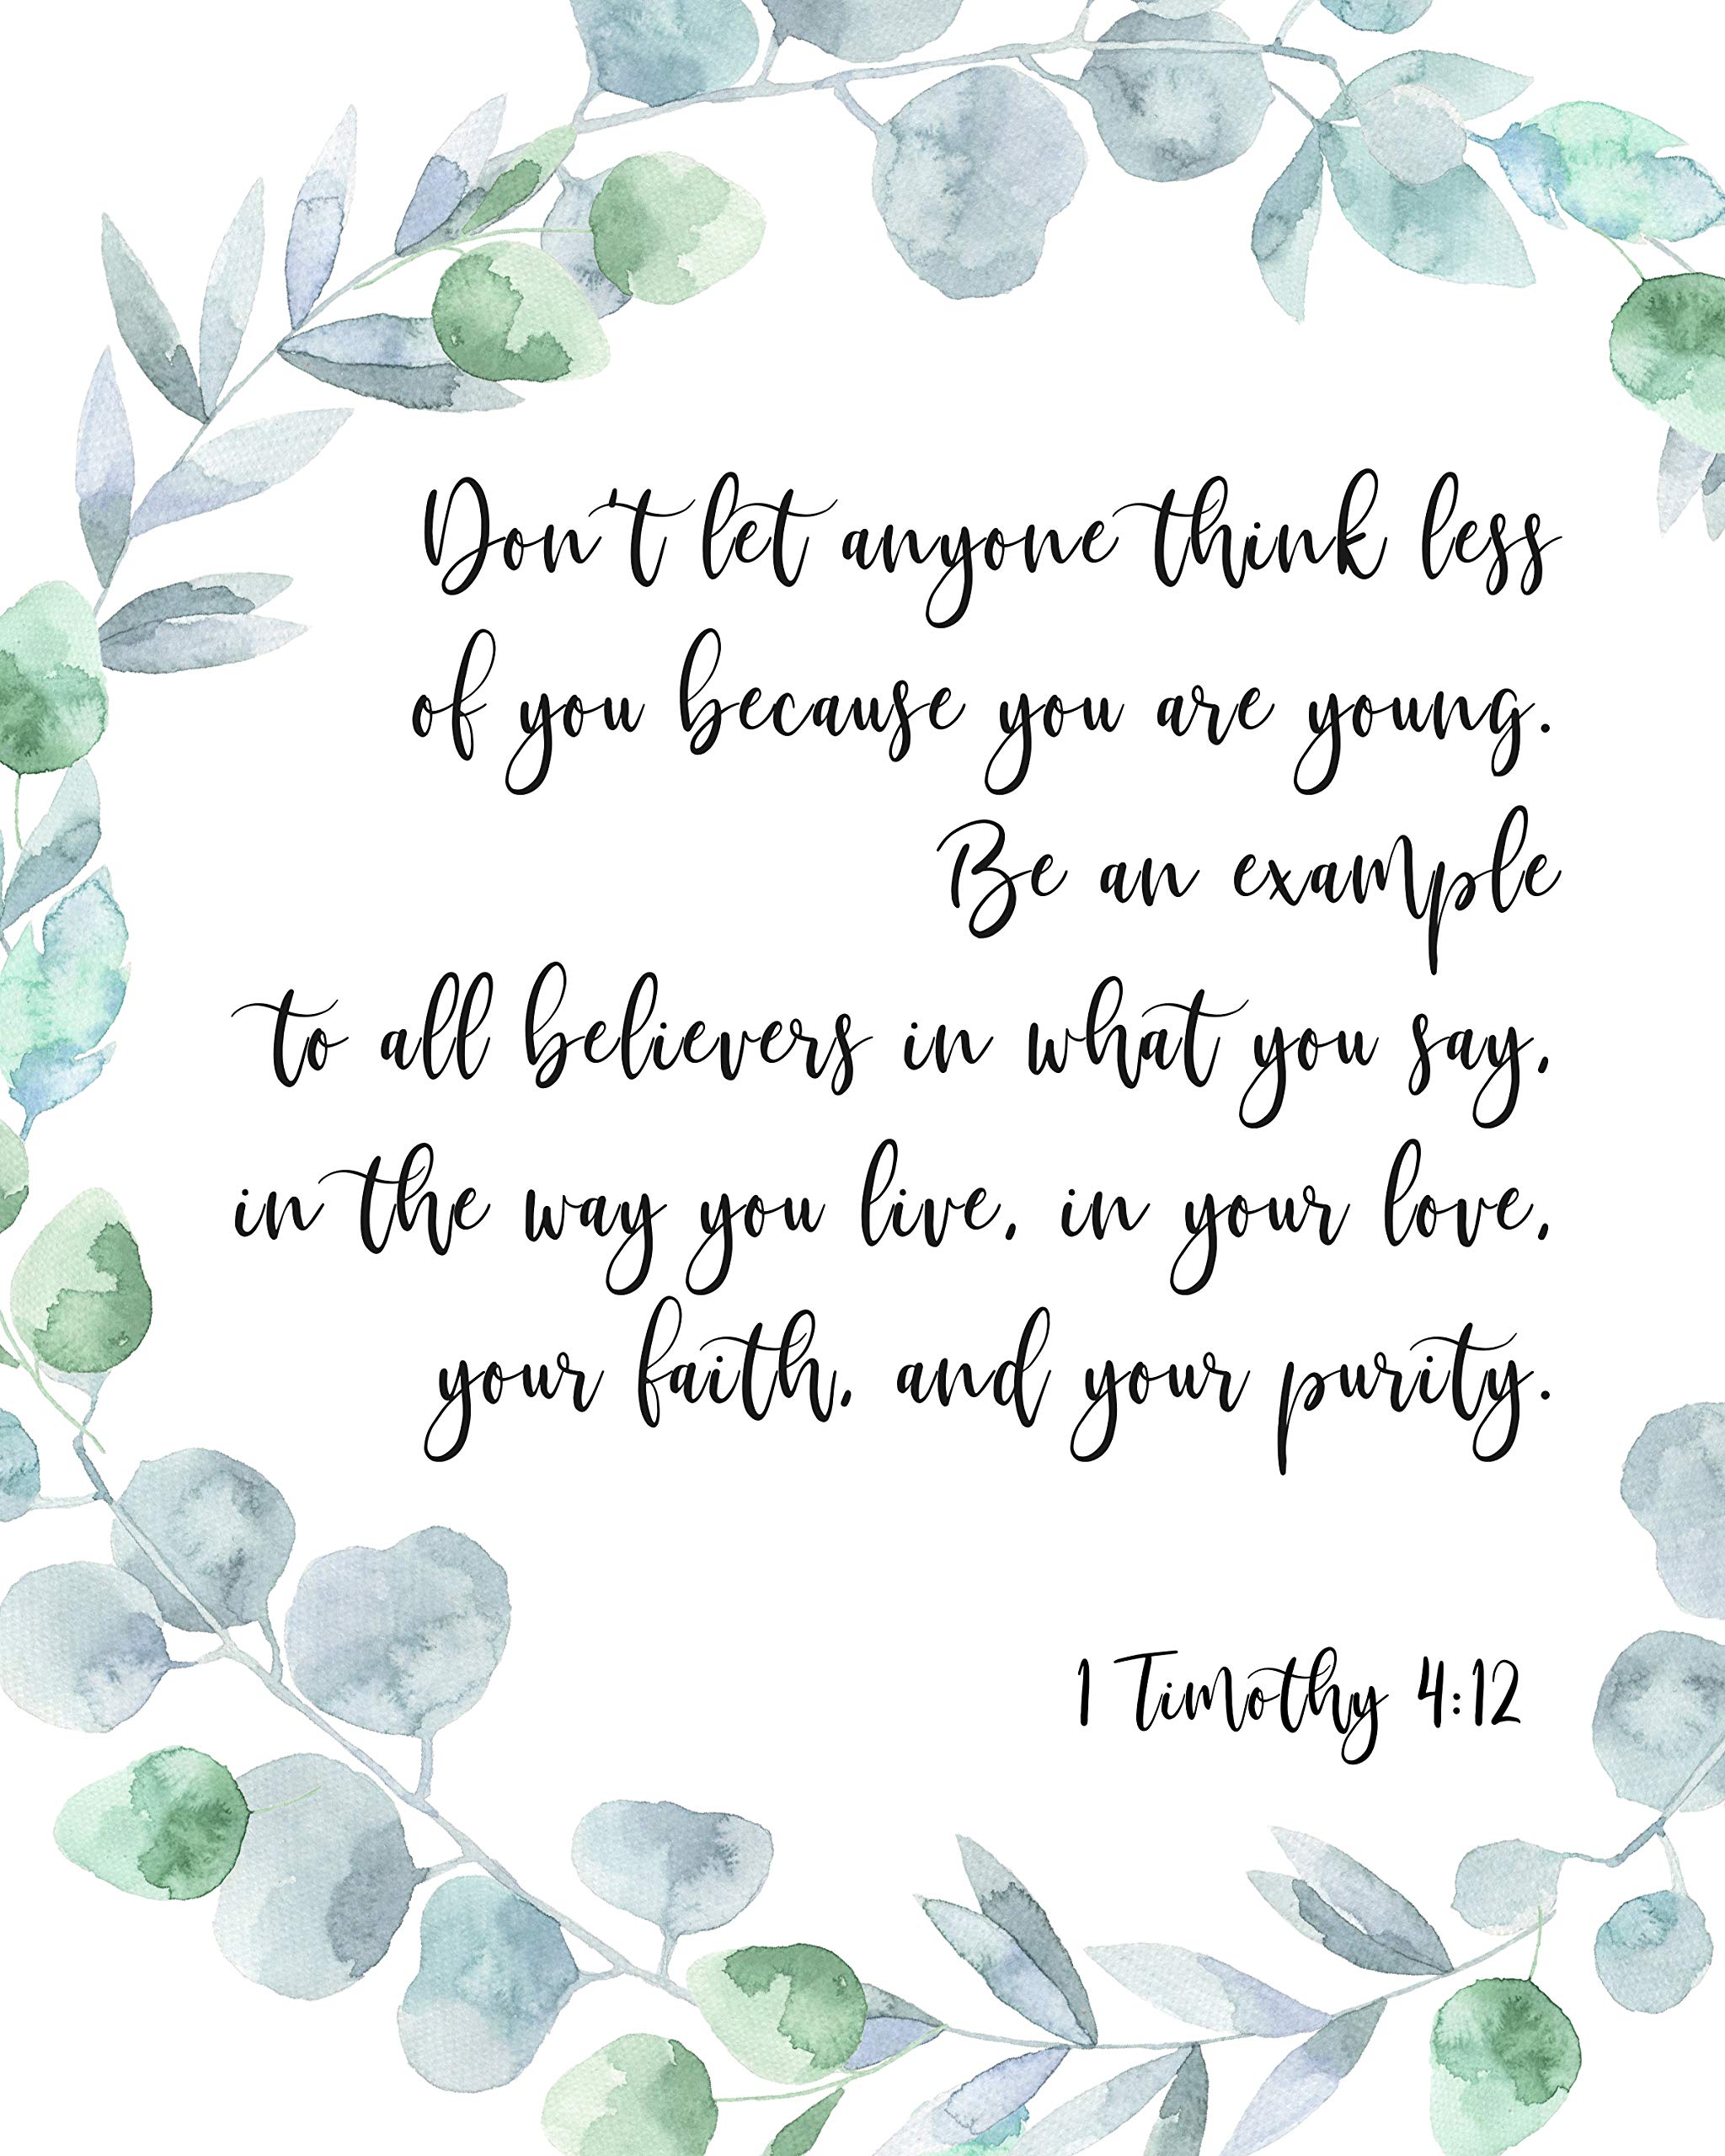 Don't let anyone think less
of you because you are young.
Be an example
to all believers in what you say,
in the way you live, in your love,
your faith, and your purity.
1 Timothy 4:12